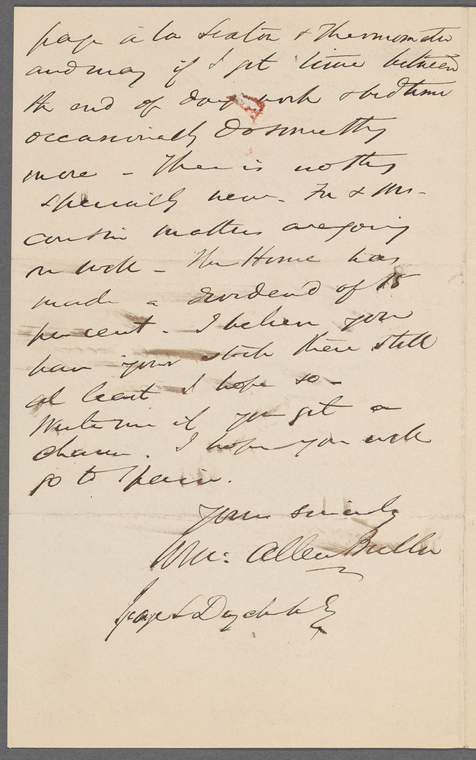 page à la Seaton & Thermometer
and may if I get time between
the end of day work & bedtime
occasionally do something
more – There is nothing
specially new. In &
matters are going
on well – The Home has
made a dividend of 15
per cent. I believe you
have your stock there still
at least I hope so –
Write me if you get a
chance. I hope you will
go to Spain.
Yours sincerely
Wm: Allen Butler
Duyckinck Esq